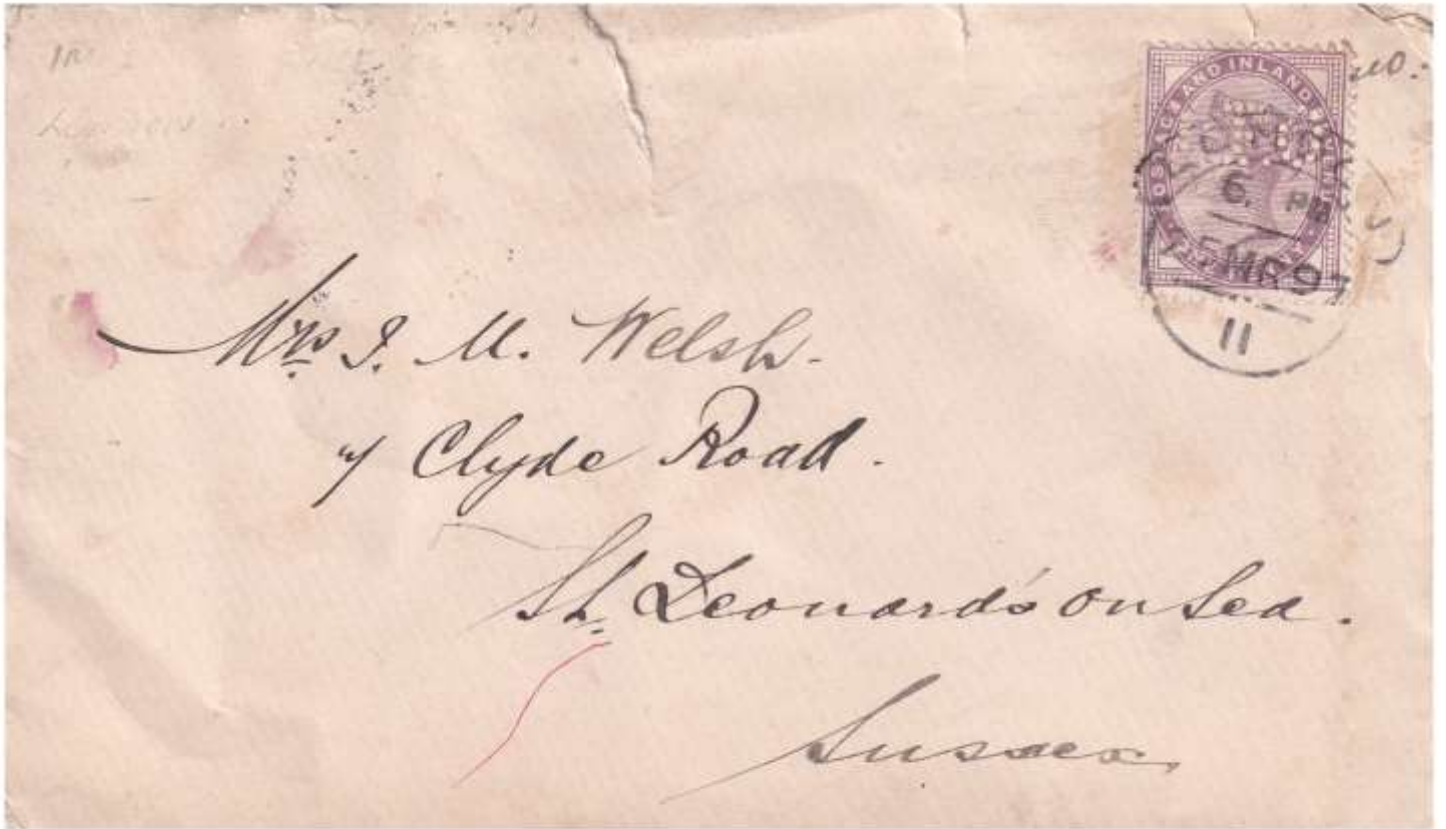 uo.
POSTAGE AND INLAND REVENUE
6 PM
5 MR 97
11
Mrs I. M. Welsh.
7 Clyde Road.
St. Leonard's on Sea.
Sussex